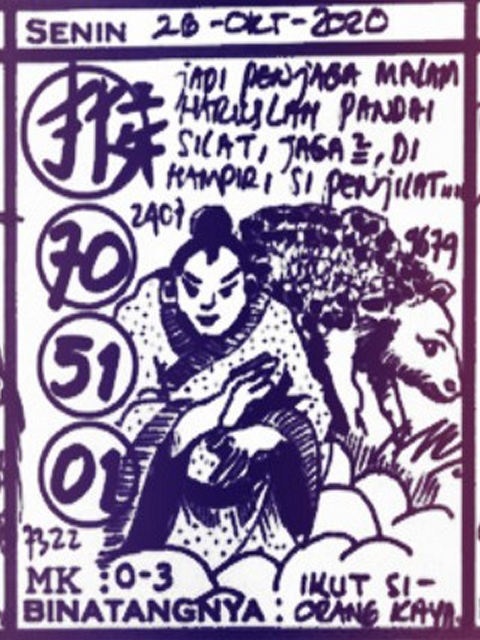 SENIN 26-OKT-2020
猴
JADI PENJAGA MALAM
HARUSLAH PANDAI
SILAT, JAGA², DI
HAMPIRI SI PENJILAT....
2407
9679
70
51
01
7322
MK : 0-3
BINATANGNYA :
IKUT SI-
ORANG KAYA.